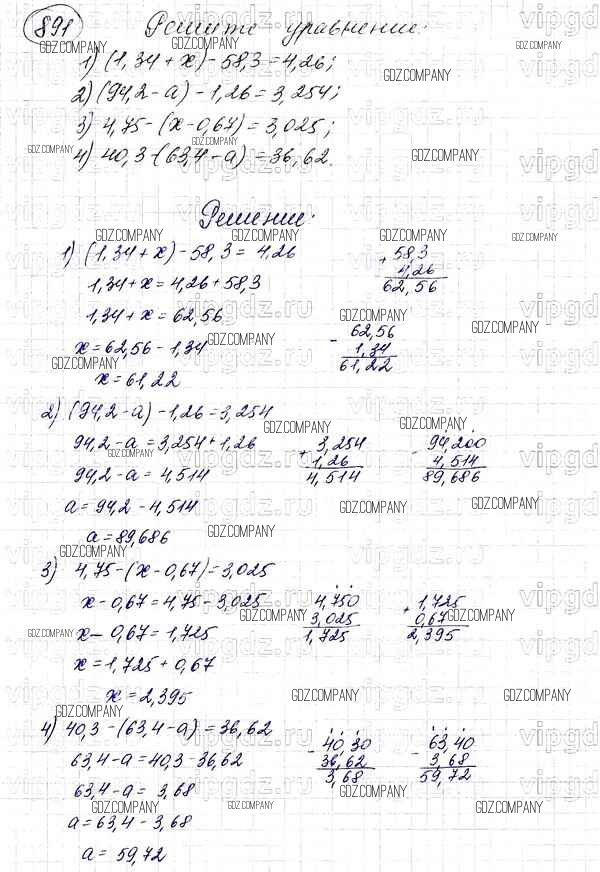 891 Решите уравнение:
1) (1,34 + x) - 58,3 = 4,26;
2) (94,2 - a) - 1,26 = 3,254;
3) 4,75 - (x - 0,67) = 3,025;
4) 40,3 - (63,4 - a) = 36,62.
Решение:
1) (1,34 + x) - 58,3 = 4,26
1,34 + x = 4,26 + 58,3
1,34 + x = 62,56
x = 62,56 - 1,34
x = 61,22
+ 58,3
4,26
62,56
- 62,56
1,34
61,22
2) (94,2 - a) - 1,26 = 3,254
94,2 - a = 3,254 + 1,26
94,2 - a = 4,514
a = 94,2 - 4,514
a = 89,686
+ 3,254
1,26
4,514
- 94,200
4,514
89,686
3) 4,75 - (x - 0,67) = 3,025
x - 0,67 = 4,75 - 3,025
x - 0,67 = 1,725
x = 1,725 + 0,67
x = 2,395
4,750
3,025
1,725
+ 1,725
0,67
2,395
4) 40,3 - (63,4 - a) = 36,62
63,4 - a = 40,3 - 36,62
63,4 - a = 3,68
a = 63,4 - 3,68
a = 59,72
- 40,30
36,62
3,68
- 63,40
3,68
59,72
GDZ.COMPANY
vipgdz.ru